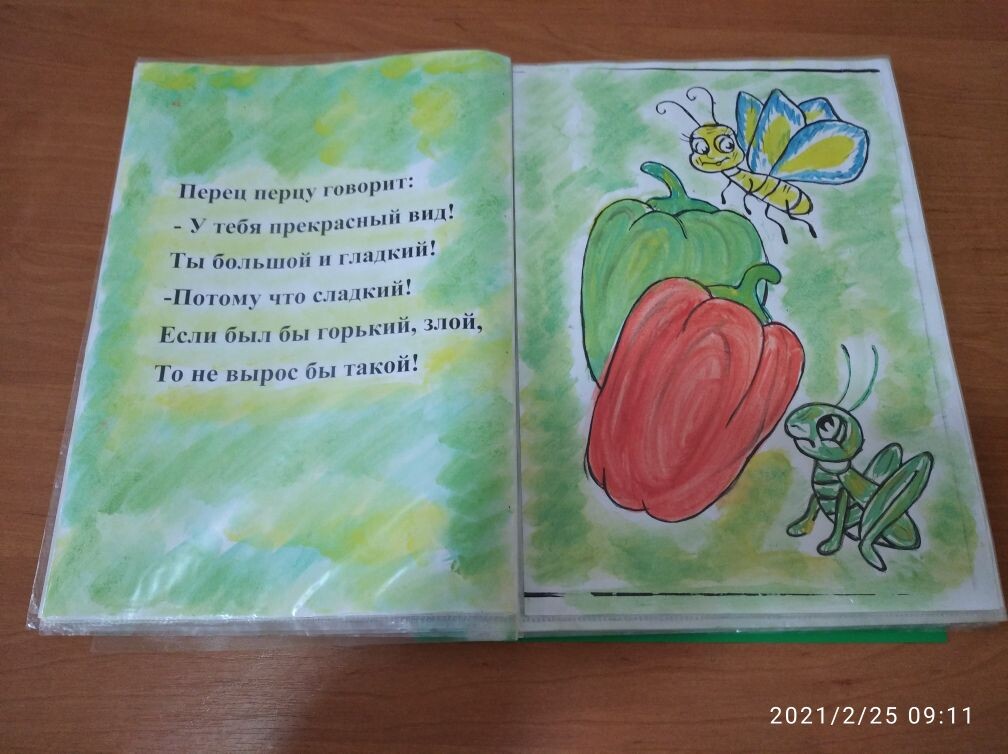 Перец перцу говорит:
- У тебя прекрасный вид!
Ты большой и гладкий!
-Потому что сладкий!
Если был бы горький, злой,
То не вырос бы такой!
2021/2/25 09:11